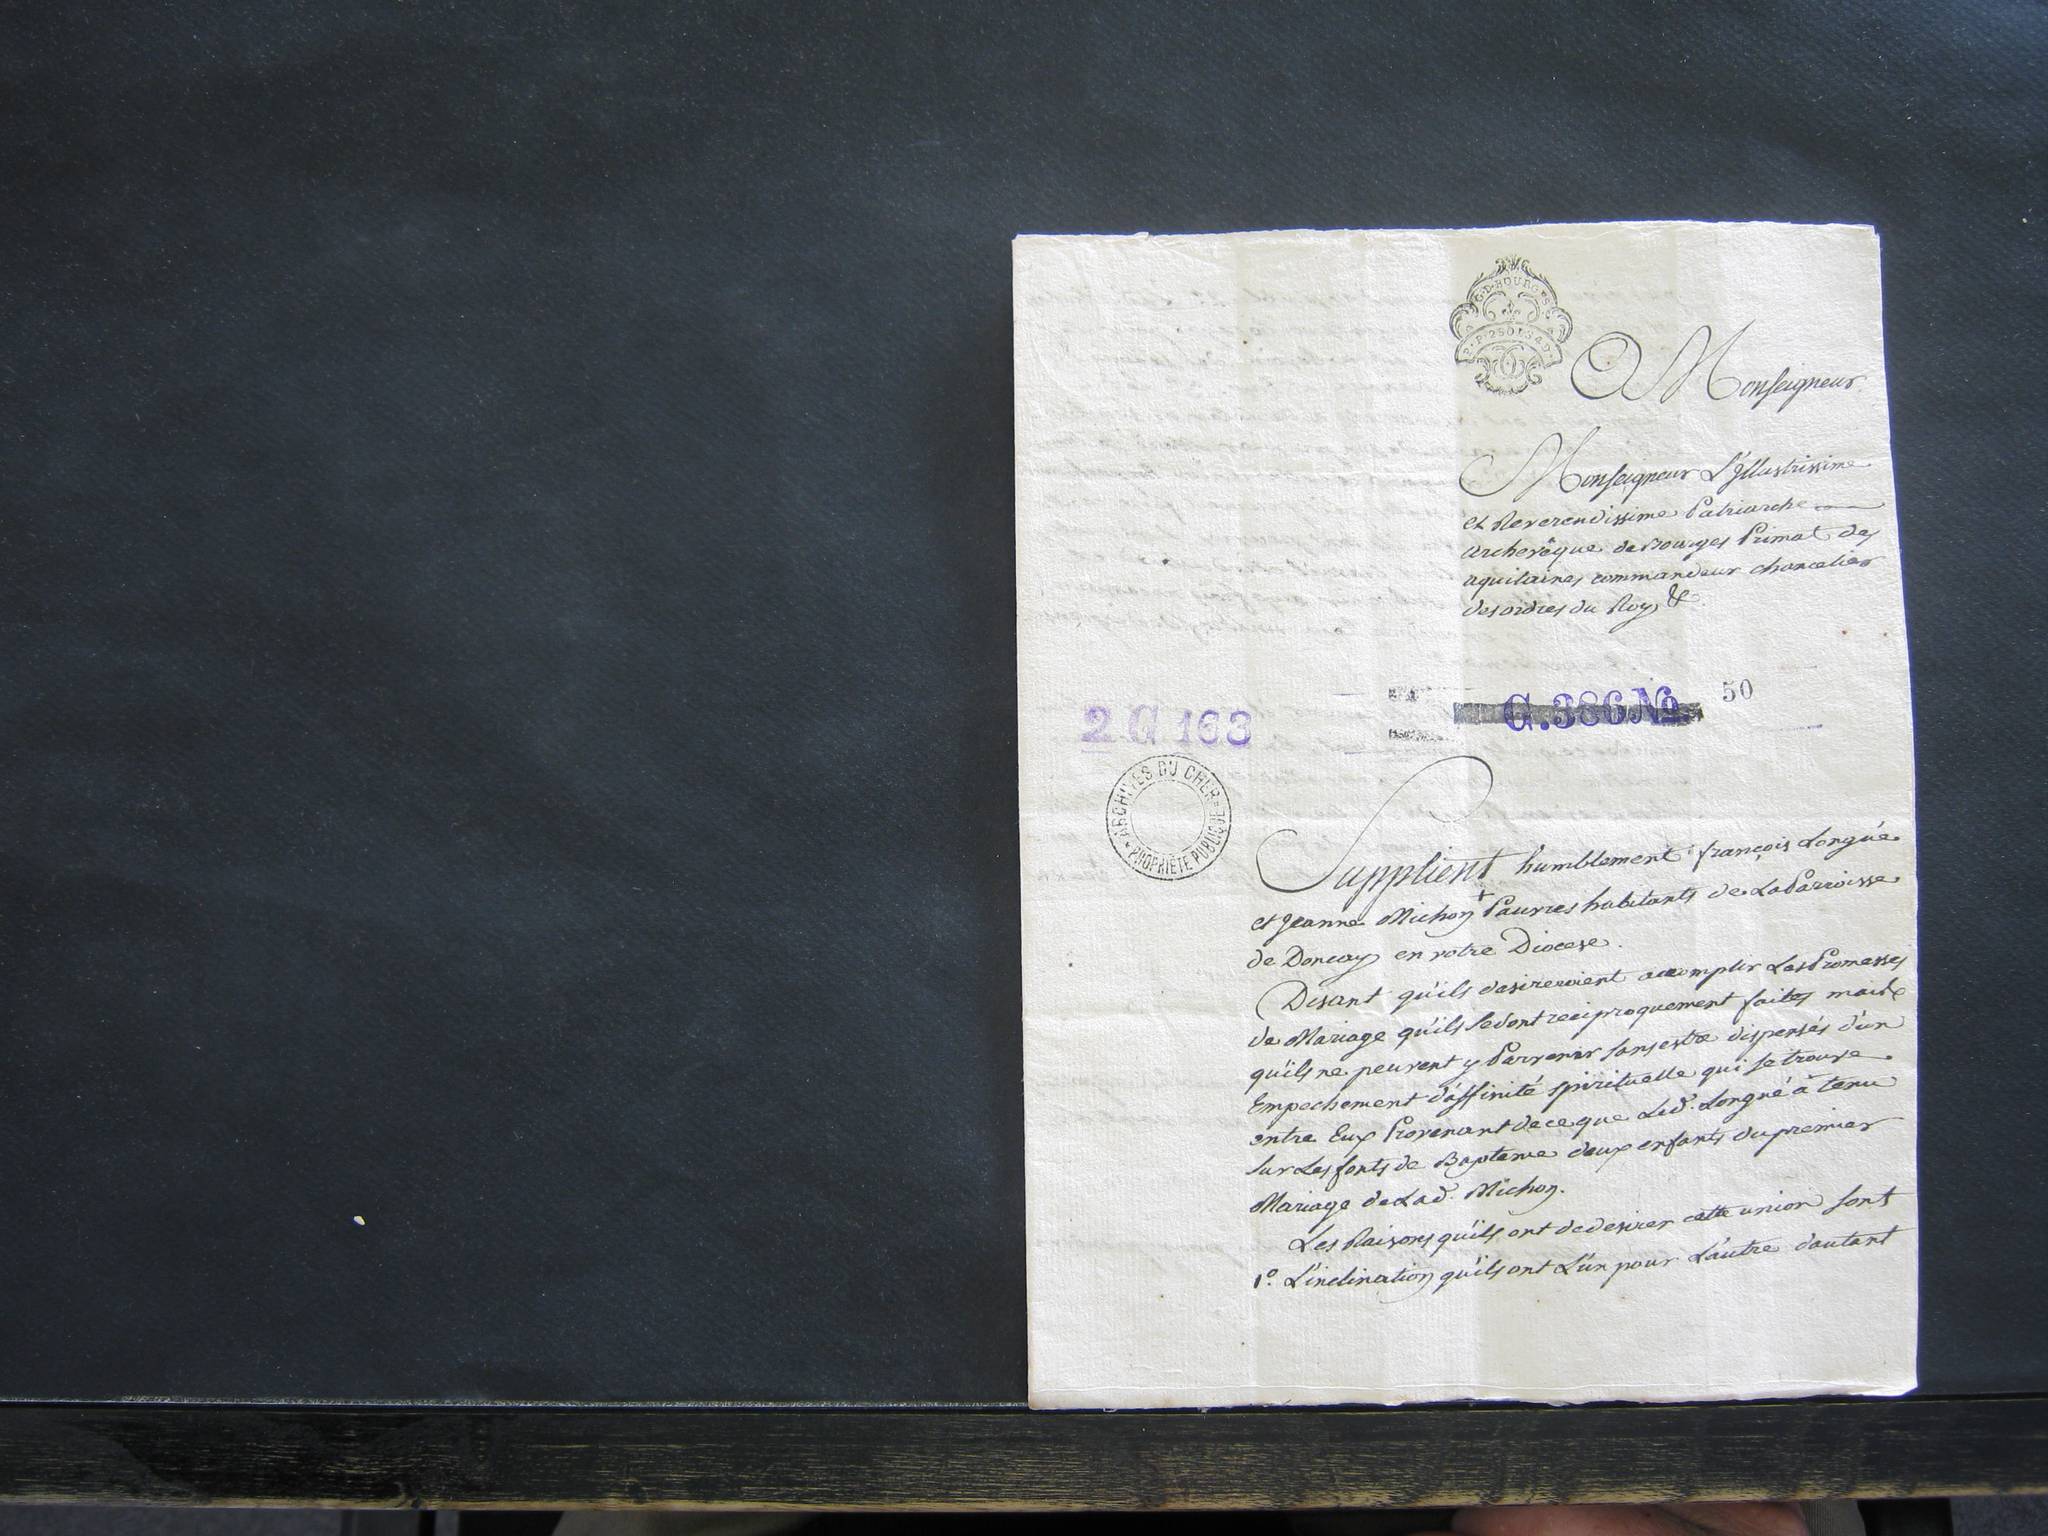 G·D·BOURGES
A Monseigneur
Monseigneur L'Jllustrissime
et Reverendissime Patriarche
archevêque de Bourges Primat des
aquitaines commandeur chancelier
des ordres du Roy, &c.
G.386 No 50
2 G 163
ARCHIVES DU CHER
PROPRIÉTÉ PUBLIQUE
Supplient humblement françois Longué
et Jeanne Michon + Pauvres habitants de La Parroisse
de Doncay en votre Diocese.
Disant qu'ils desireroient accomplir Les Promesses
de Mariage qu'ils se sont reciproquement faites mais
qu'ils ne peuvent y Parvenir sans estre dispensés d'un
Empechement d'affinité spirituelle qui se trouve
entre Eux Provenant de ce que Led. Longué à tenu
sur Les fonts de Bapteme deux enfants du premier
Mariage de Lad. Michon.
Les Raisons qu'ils ont de desirer cette union sont
1.º L'inclination qu'ils ont L'un pour L'autre d'autant